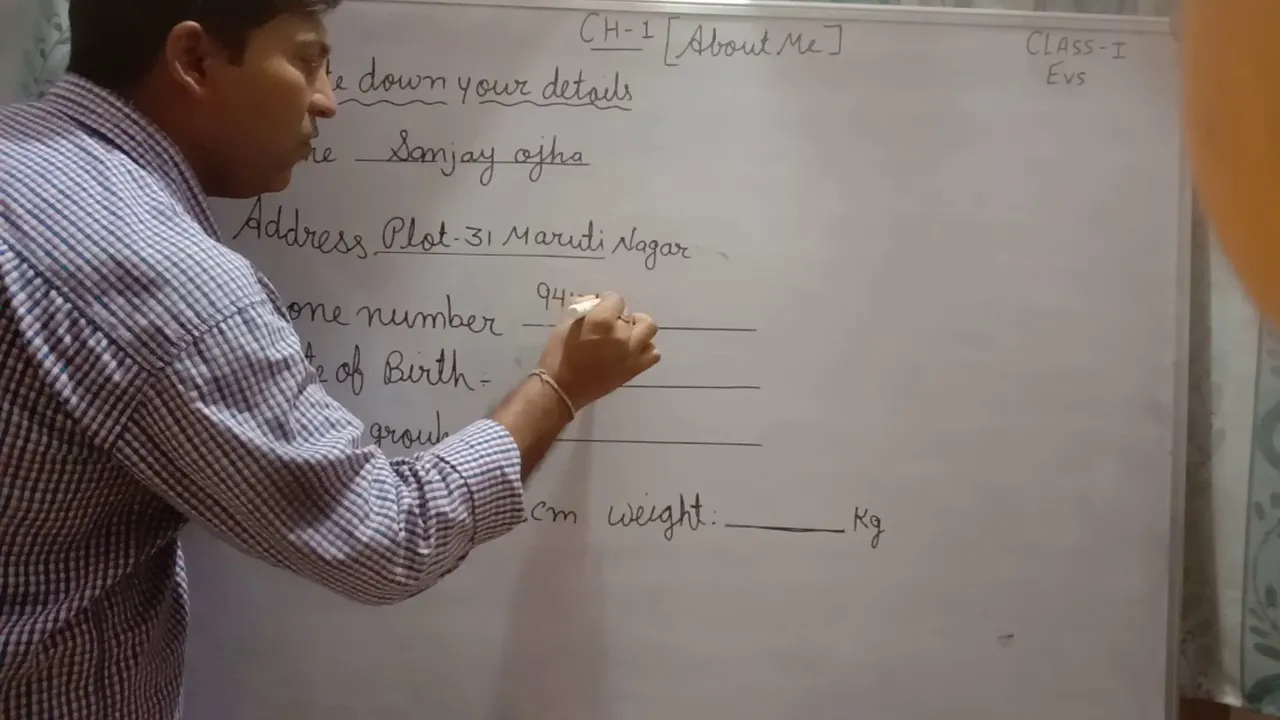 CH-1 [About Me]
CLASS-I
Evs
down your details
Sanjay ojha
Address Plot-31 Maruti Nagar
number 94
of Birth:-
group
cm weight: ______ Kg